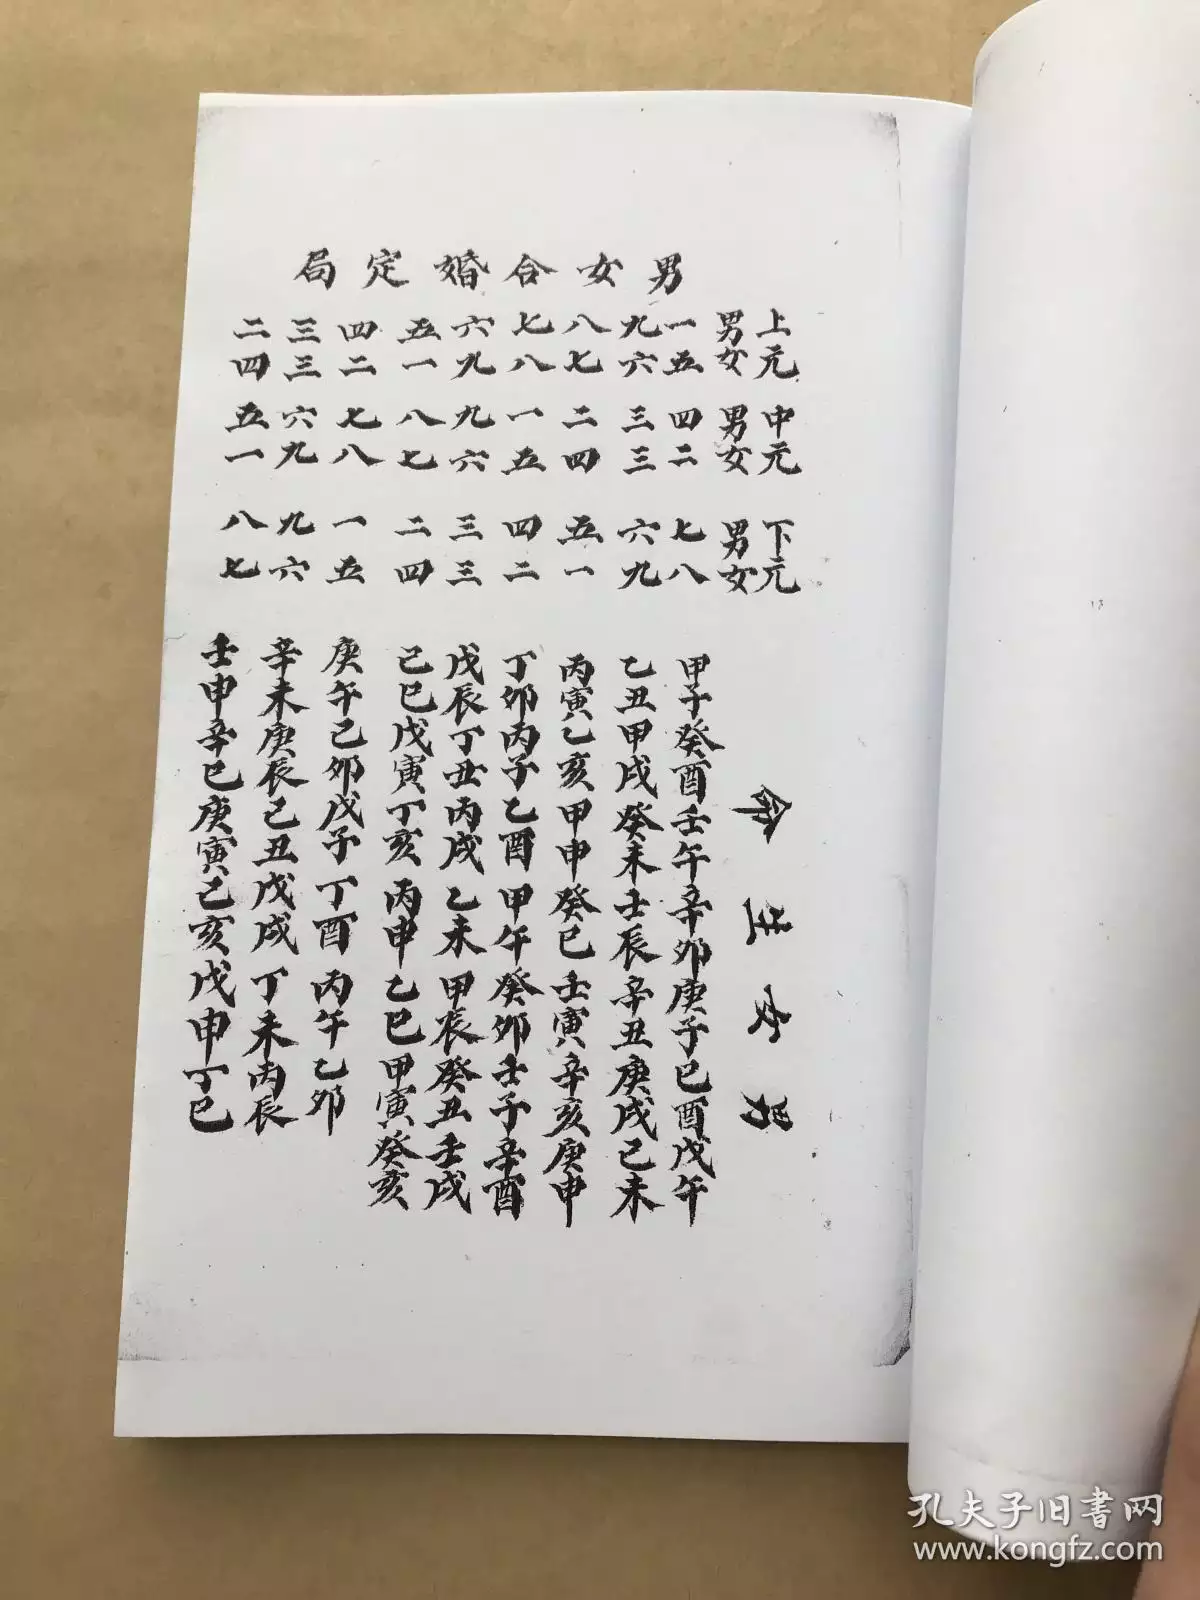 男女合婚定局
上元 中元 下元
男女 男女 男女 男女生命
一五 四二 七八 甲子癸酉壬午辛卯庚子己酉戊午
九六 三三 六九 乙丑甲戌癸未壬辰辛丑庚戌己未
八七 二四 五一 丙寅乙亥甲申癸巳壬寅辛亥庚申
七八 一五 四二 丁卯丙子乙酉甲午癸卯壬子辛酉
六九 九六 三三 戊辰丁丑丙戌乙未甲辰癸丑壬戌
五一 八七 二四 己巳戊寅丁亥丙申乙巳甲寅癸亥
四二 七八 一五 庚午己卯戊子丁酉丙午乙卯
三三 六九 九六 辛未庚辰己丑戊戌丁未丙辰
二四 五一 八七 壬申辛巳庚寅己亥戊申丁巳
孔夫子旧书网
www.kongfz.com